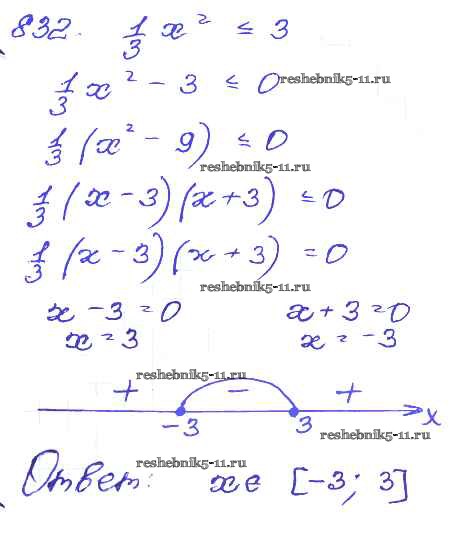 832. 1/3 x² ≤ 3
1/3 x² - 3 ≤ 0 reshebnik5-11.ru
1/3 (x² - 9) ≤ 0
reshebnik5-11.ru
1/3 (x - 3)(x + 3) ≤ 0
1/3 (x - 3)(x + 3) = 0
reshebnik5-11.ru
x - 3 = 0 x + 3 = 0
x = 3 x = -3
reshebnik5-11.ru
+ - +
-3 3 x
reshebnik5-11.ru
reshebnik5-11.ru
Ответ: x ∈ [-3; 3]